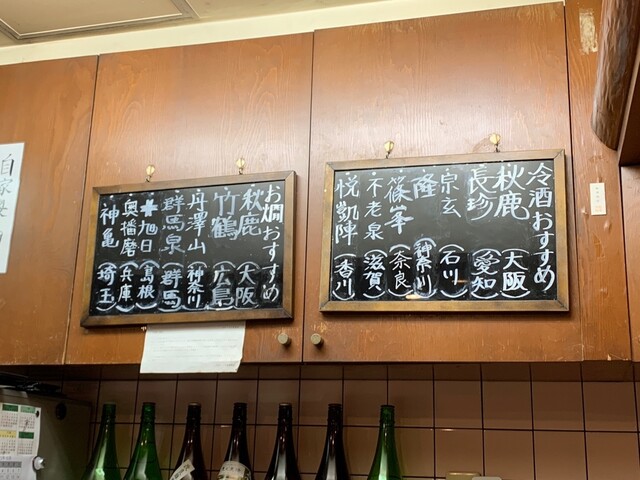 冷酒おすすめ
秋鹿(大阪)
長珍(愛知)
宗玄(石川)
隆(神奈川)
篠峯(奈良)
不老泉(滋賀)
悦凱陣(香川)
お燗おすすめ
秋鹿(大阪)
竹鶴(広島)
丹澤山(神奈川)
群馬泉(群馬)
旭日(島根)
奥播磨(兵庫)
神亀(埼玉)